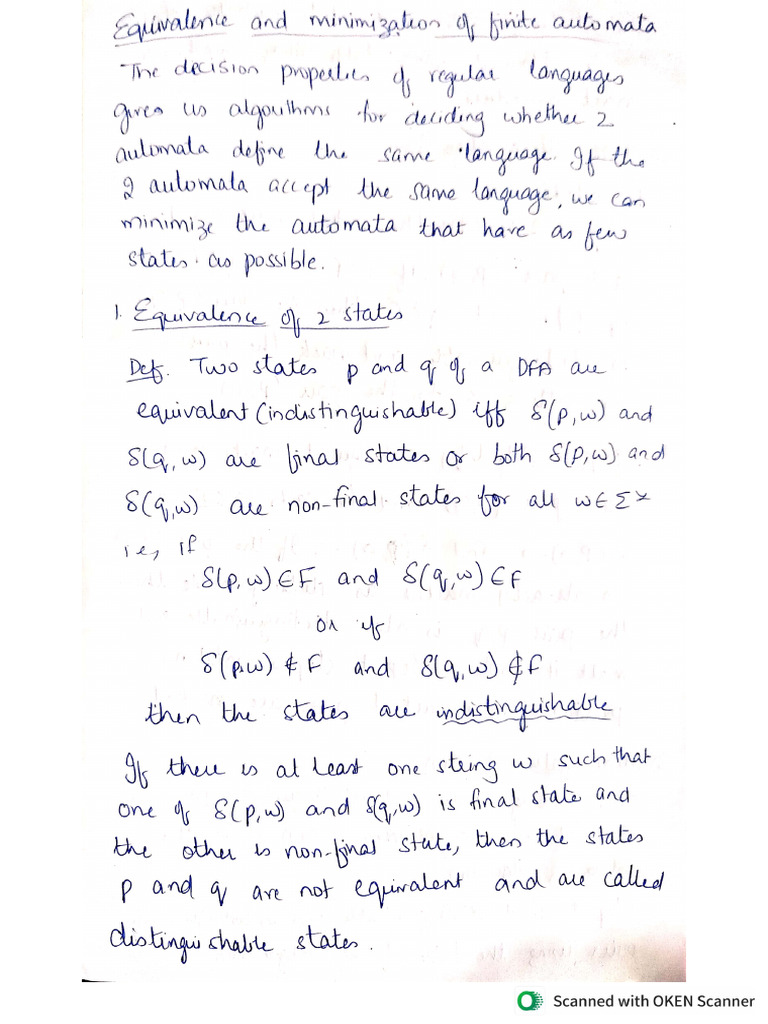 Equivalence and minimization of finite automata
The decision properties of regular languages
gives us algorithms for deciding whether 2
automata define the same language. If the
2 automata accept the same language, we can
minimize the automata that have as few
states as possible.
1. Equivalence of 2 states
Def. Two states p and q of a DFA are
equivalent (indistinguishable) iff δ(p,w) and
δ(q,w) are final states or both δ(p,w) and
δ(q,w) are non-final states for all w∈Σ*
ie, if
δ(p,w)∈F and δ(q,w)∈F
or if
δ(p,w)∉F and δ(q,w)∉F
then the states are indistinguishable
If there is at least one string w such that
one of δ(p,w) and δ(q,w) is final state and
the other is non-final state, then the states
p and q are not equivalent and are called
distinguishable states.
Scanned with OKEN Scanner